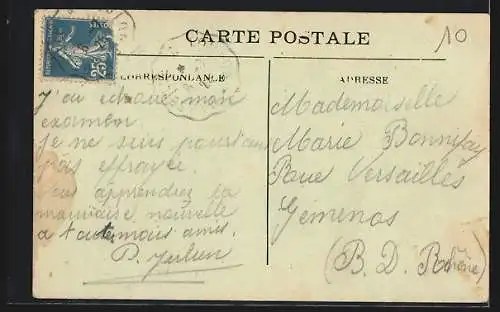 CARTE POSTALE
10
CORRESPONDANCE
ADRESSE
25c
J'ai échoué mon
examen
je ne suis pourtant
pas effrayée.
apprendrez la
mauvaise nouvelle
a toutes mes amies.
P. Julien
Mademoiselle
Marie Bonnifay
Rue Versailles
Gémenos
(B. D. Rhône)